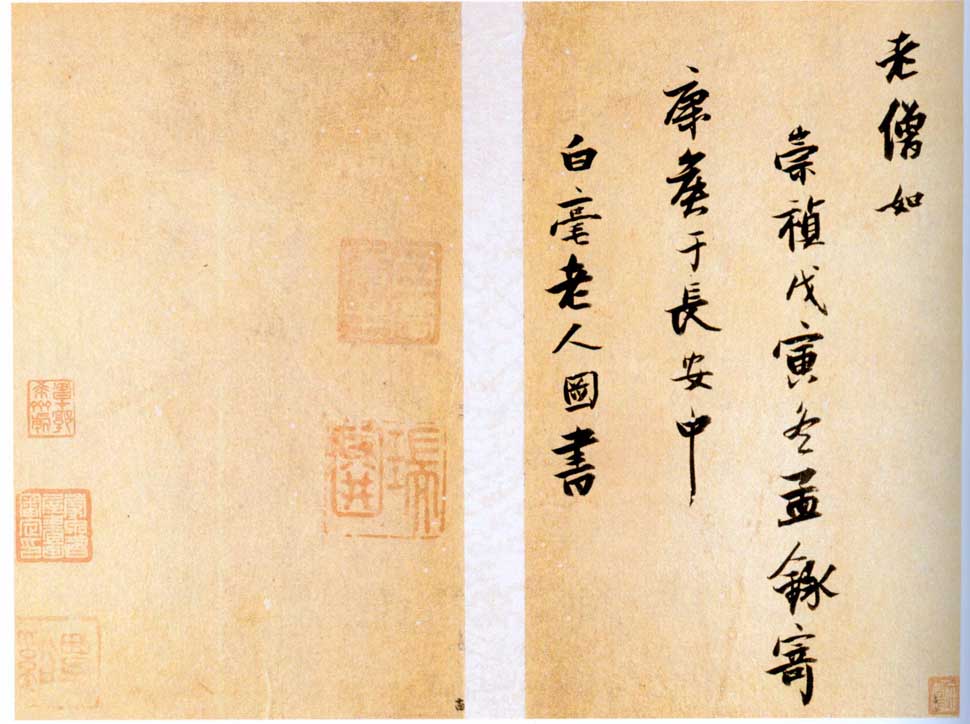 老僧如
崇禎戊寅冬孟錄寄
康侯于長安中
白毫老人圖書